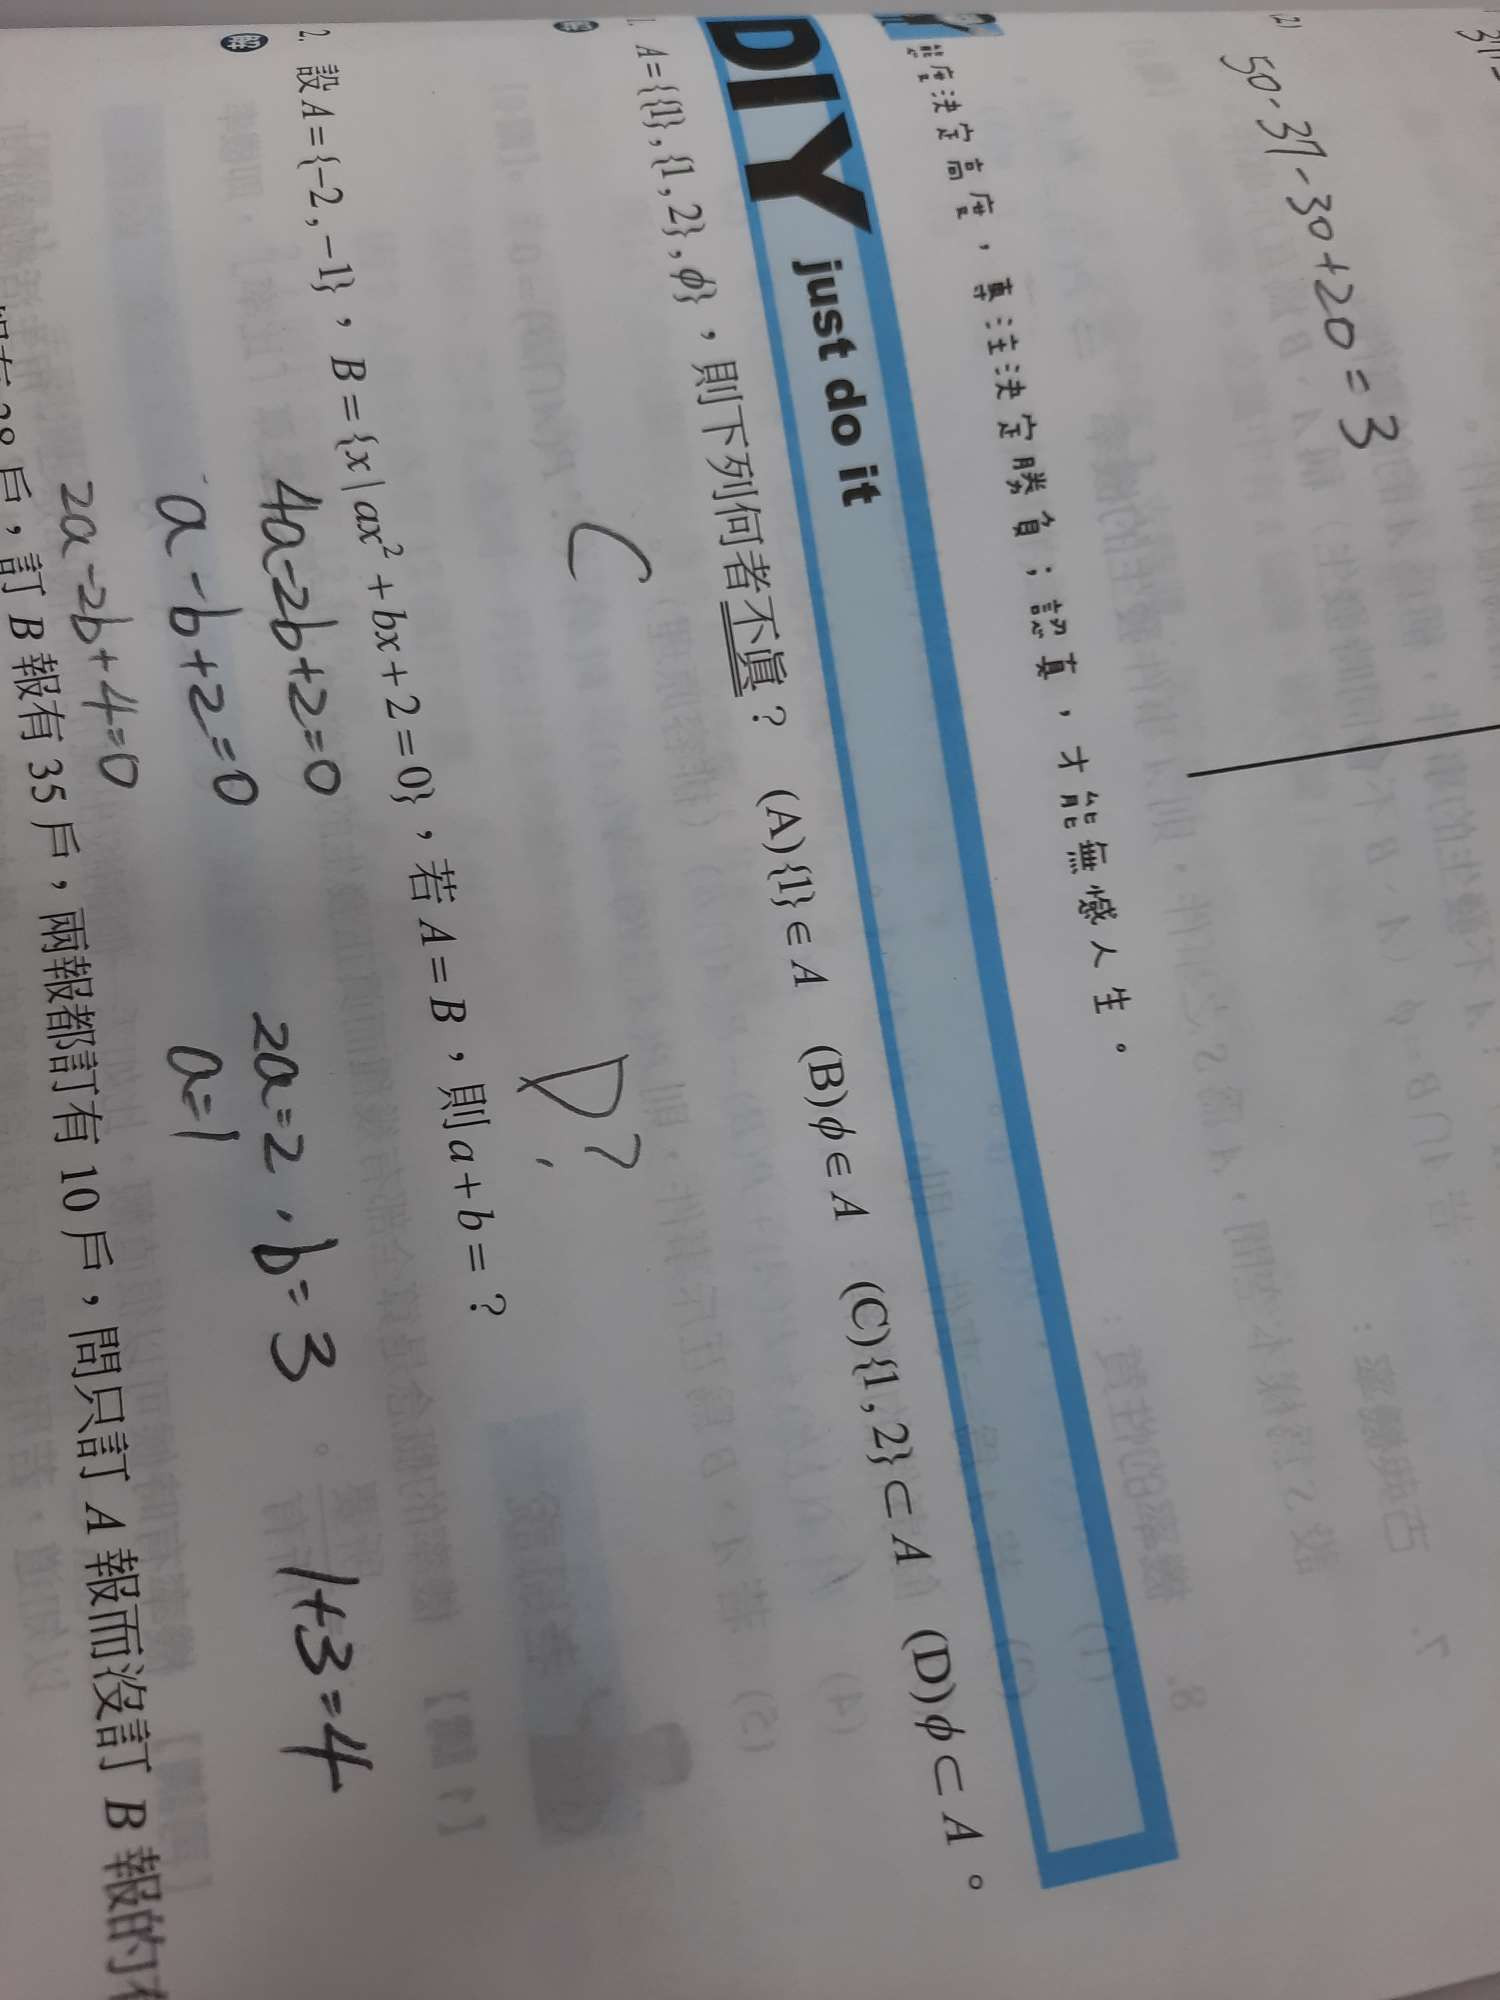 50-37-30+20=3
態度決定高度，專注決定勝負；認真，才能無憾人生。
DIY just do it
1. A={{1},{1,2},ϕ}，則下列何者不真？ (A){1}∈A (B)ϕ∈A (C){1,2}⊂A (D)ϕ⊂A。
解
C D?
2. 設A={-2,-1}，B={x|ax²+bx+2=0}，若A=B，則a+b=？
解
4a-2b+2=0 2a=2，b=3 1+3=4
a-b+2=0 a=1
2a-2b+4=0
28戶，訂B報有35戶，兩報都訂有10戶，問只訂A報而沒訂B報的有